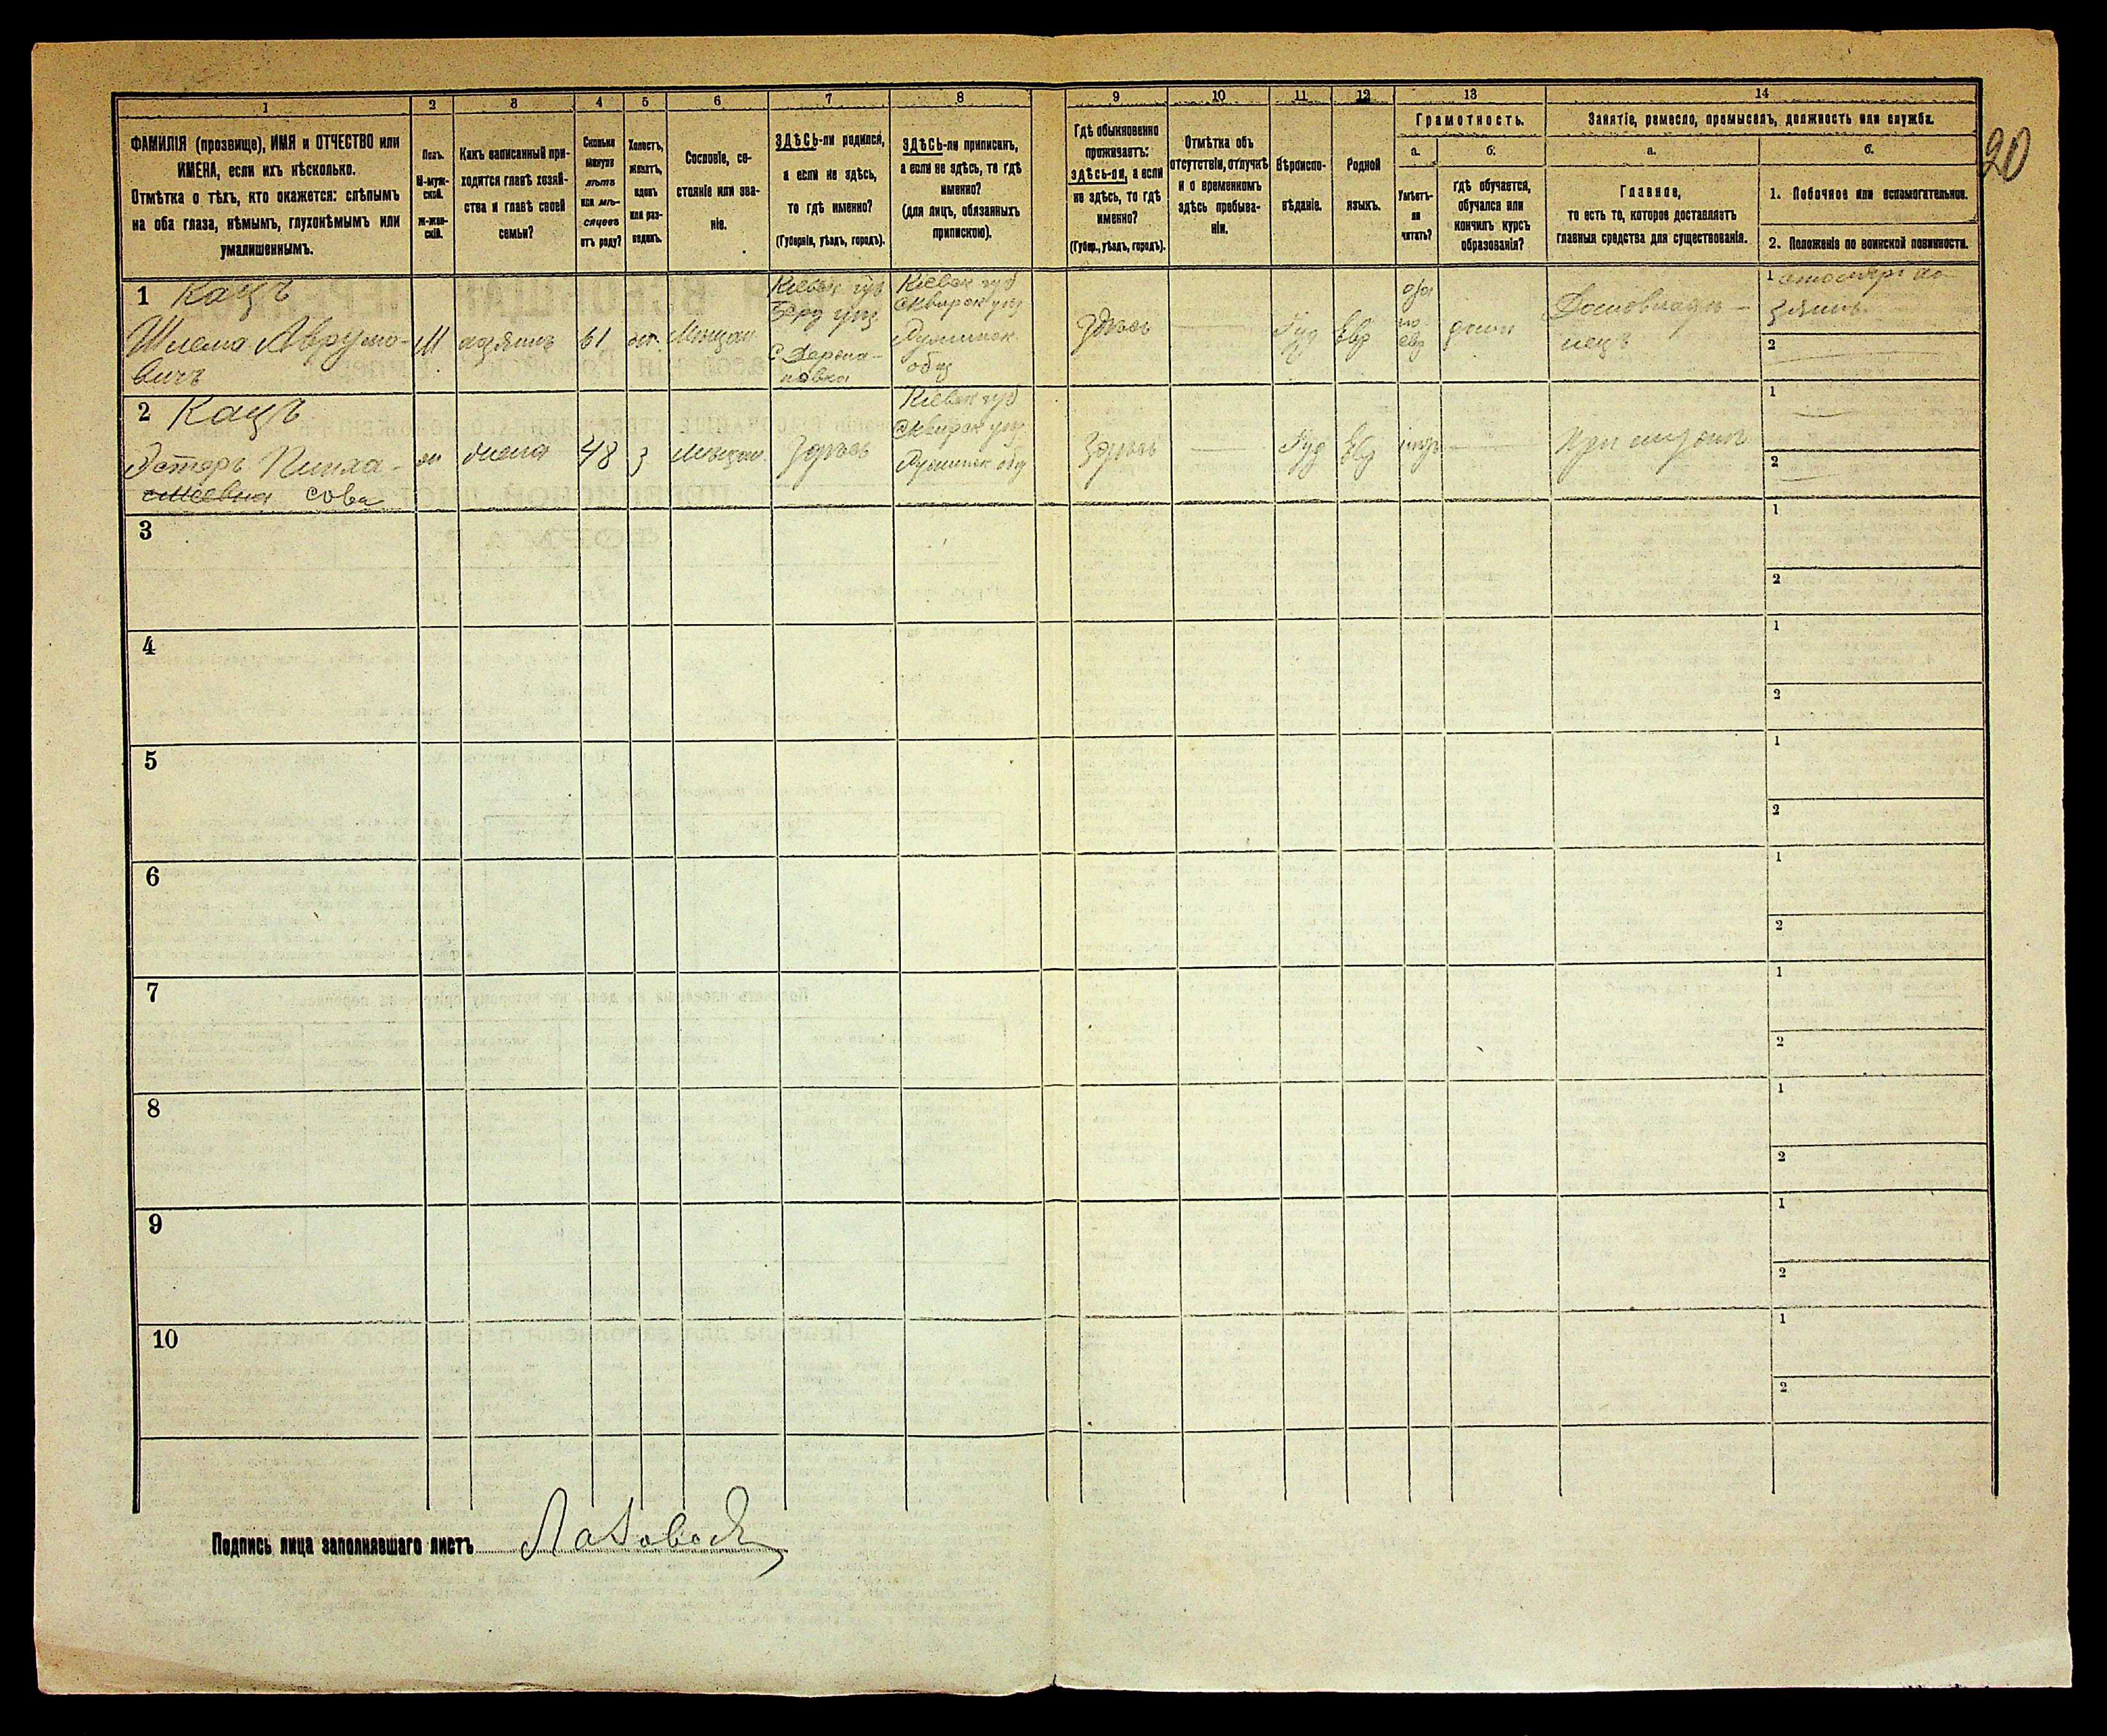 20
1 2 3 4 5 6 7 8 9 10 11 12 13 14
ФАМИЛІЯ (прозвище), ИМЯ и ОТЧЕСТВО или
ИМЕНА, если ихъ нѣсколько.
Отмѣтка о тѣхъ, кто окажется: слѣпымъ
на оба глаза, нѣмымъ, глухонѣмымъ или
умалишеннымъ.
Полъ.
М-муж-
ской.
ж-жен-
скій.
Какъ записанный при-
ходится главѣ хозяй-
ства и главѣ своей
семьи?
Сколько
минуло
лѣтъ
или мѣ-
сяцевъ
отъ роду?
Холостъ,
женатъ,
вдовъ
или раз-
веденъ.
Сословіе, со-
стояніе или зва-
ніе.
ЗДѢСЬ-ли родился,
а если не здѣсь,
то гдѣ именно?
(Губернія, уѣздъ, городъ).
ЗДѢСЬ-ли приписанъ,
а если не здѣсь, то гдѣ
именно?
(для лицъ, обязанныхъ
припискою).
Гдѣ обыкновенно
проживаетъ:
здѣсь-ли, а если
не здѣсь, то гдѣ
именно?
(Губер., уѣздъ, городъ).
Отмѣтка объ
отсутствіи, отлучкѣ
и о временномъ
здѣсь пребыва-
ніи.
Вѣроиспо-
вѣданіе.
Родной
языкъ.
Грамотность.
а.
Умѣетъ-
ли
читать?
б.
гдѣ обучается,
обучался или
кончилъ курсъ
образованія?
Занятіе, ремесло, промыселъ, должность или служба.
а.
Главное,
то есть то, которое доставляетъ
главныя средства для существованія.
б.
1. Побочное или вспомогательное.
2. Положеніе по воинской повинности.
1 Кацъ
Шлема Аврумо-
вичъ
М
61
Мѣщан
Кіевск губ
Берд уѣз
Кіевск губ
Сквирск уѣз
общ
Здѣсь
Іуд
Евр
по
евр
дома
Домовладѣ-
лецъ
1
зяинъ
2
2 Кацъ
Эстеръ Пинха-
сова
жена
48
з
мѣщан
Здѣсь
Кіевск губ
Сквирск уѣз
Здѣсь
Іуд
Евр
При
1
2
3
1
2
4
1
2
5
1
2
6
1
2
7
1
2
8
1
2
9
1
2
10
1
2
Подпись лица заполнявшаго листъ